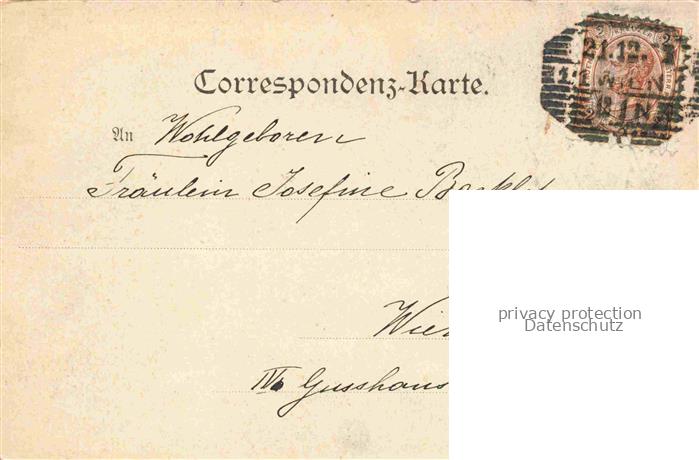 2 2
21.12.
WIEN
Correspondenz-Karte.
An Wohlgeboren
Fräulein Josefine
Wien
IV. Gusshaus
privacy protection
Datenschutz